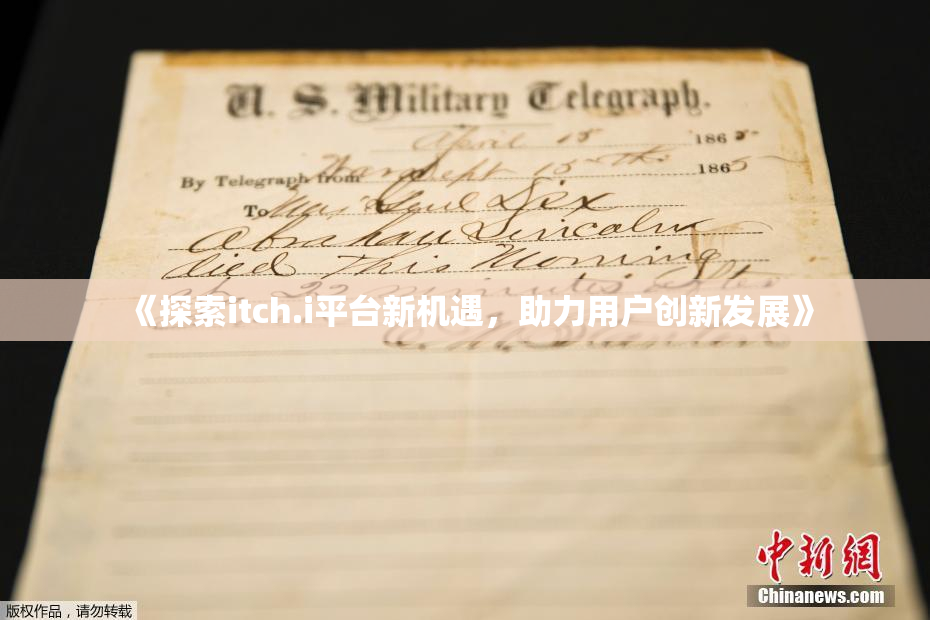 U. S. Military Telegraph.
April 15 1865
By Telegraph from War Dept 15th 1865
To Maj Genl Dix
Abraham Lincoln
died This Morning
at 22 minutes after
《探索itch.i平台新机遇，助力用户创新发展》
E. M. Stanton
中新网
Chinanews.com
版权作品，请勿转载